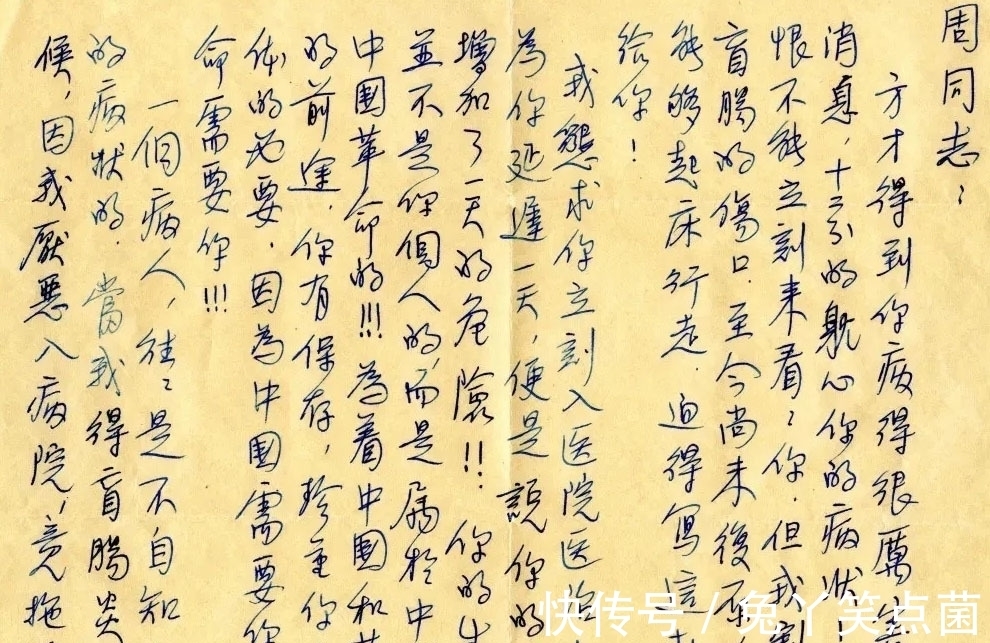 周同志：
方才得到你病得很厲害
消息，十二分的躭心你的病狀
恨不能立刻来看々你．但我割
盲腸的傷口．至今尚未復
能夠起床行走．迫得寫這
給你！
我懇求你立刻入医院医治
為你延遲一天，便是說你的
增加了一天的危險!!你的生
並不是你個人的，而是屬於中
中國革命的!!!為着中国和
的前途．你有保存，珍重你
体的必要．因為中国需要你
命需要你!!!
一個病人，往々是不自知
的病狀的．當我得盲腸炎
候，因我厭惡入病院，竟拖
快传号／兔丫笑点菌